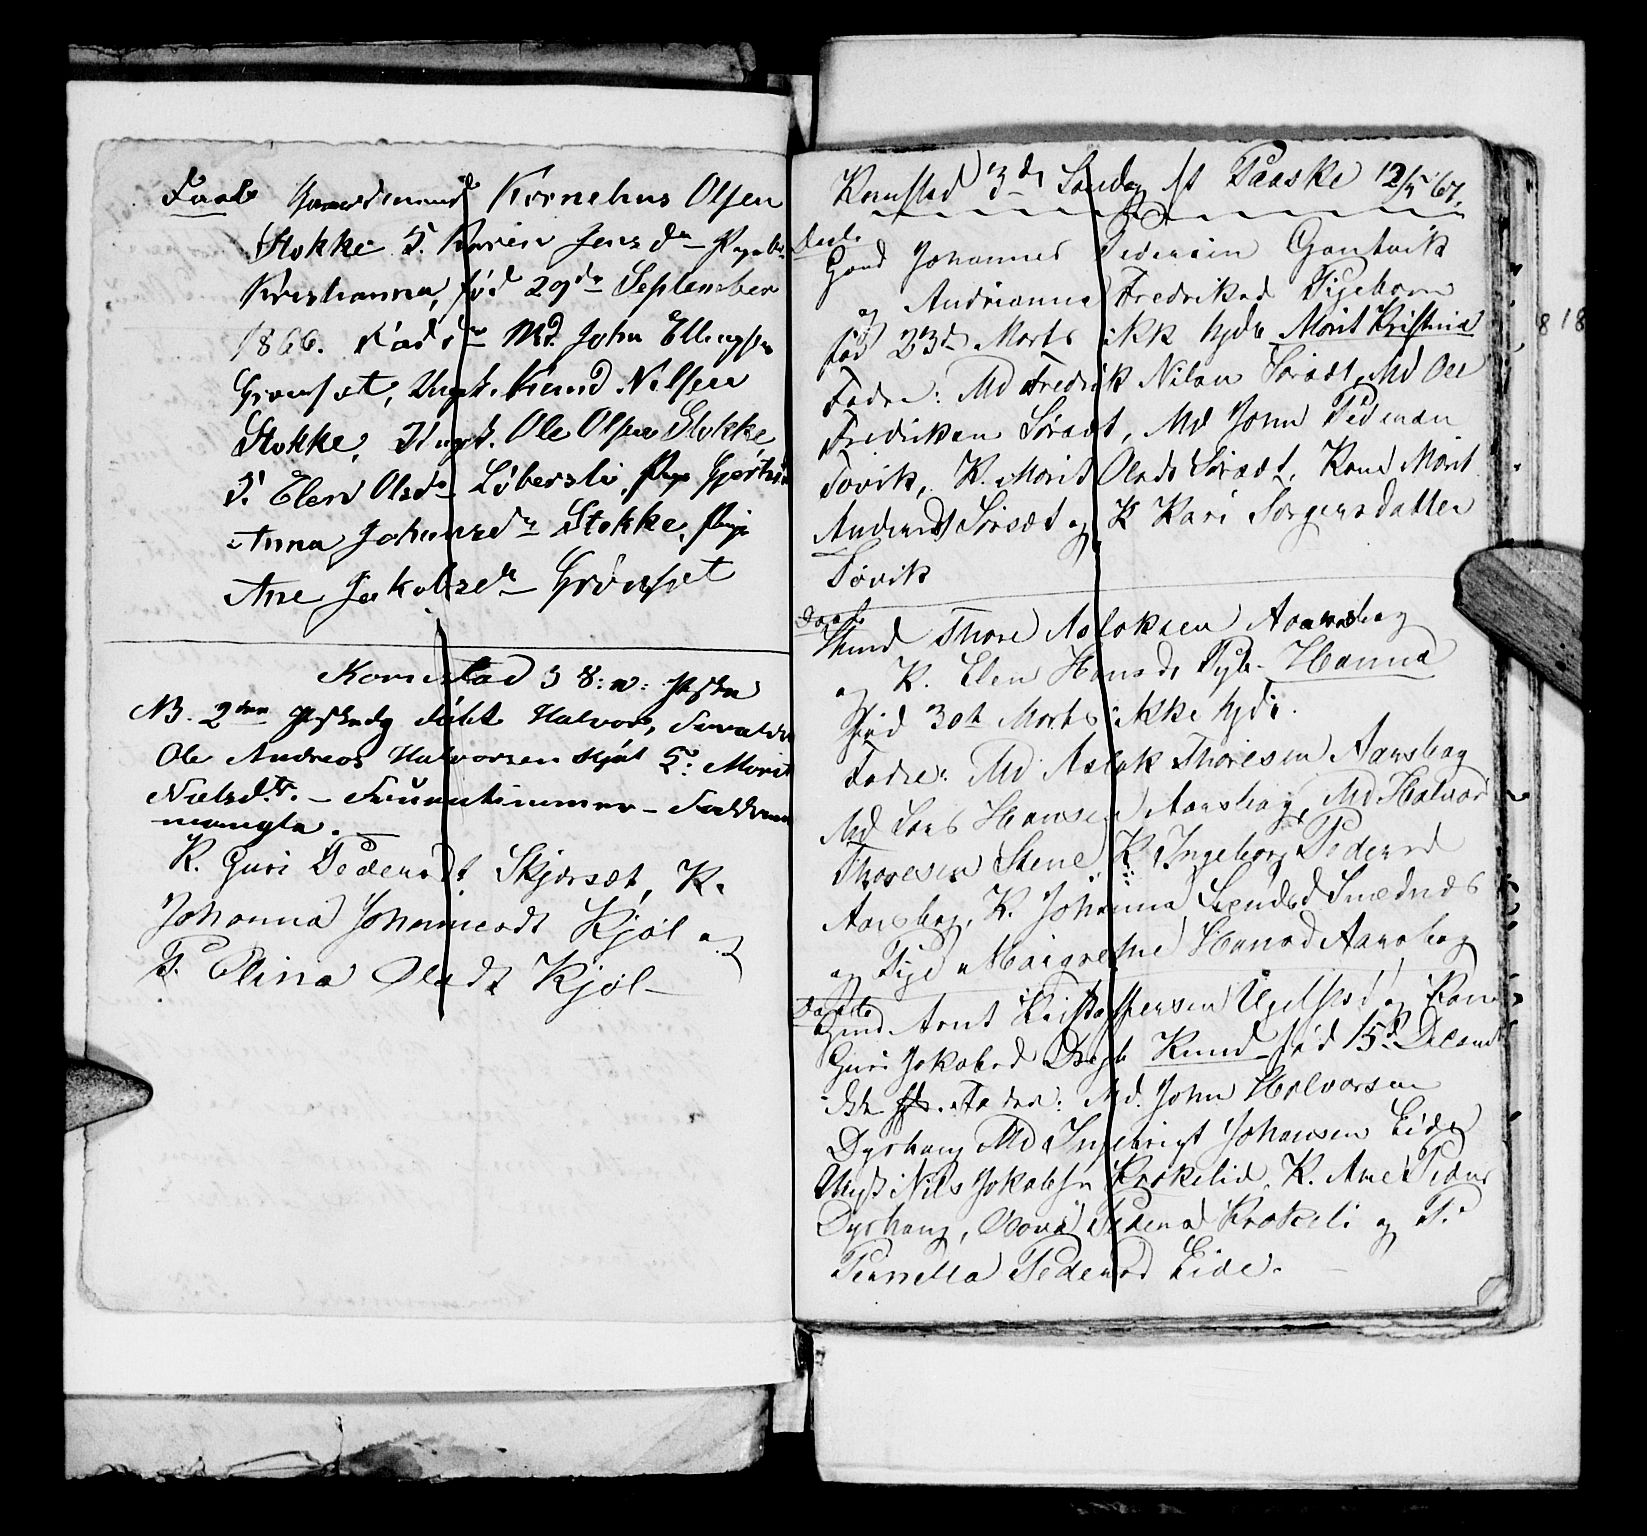 Daab Gaardmand Kornelius Olsen
Stokke. H. Karen Jensdr Pigeb.
Kristianna, fød 29de September
1866. Fad. Md. John Ellingsen
Grønset, Ungk. Knud Nilsen
Stokke, Ungk. Ole Olsen Stokke,
H. Elen Olsdr Løbersli, Pige
Anna Johansdr Stokke, Pige
Ane Jakobsdr Grønset
Kornstad 3 S:
NB. 2den døbt Halvor,
Ole Andreas Halvorsen Kjøl H: Marit
Nielsdtr. – Fruentimmer –
mangla. –
K. Guri Pedersdt Skjørsæt, K.
Johanna Johannesdt Kjøl og
P. Elina Olsdt Kjøl –
Kornstad 3de Søndag ft Paaske 12/5 67.
Daab
Gmd Johannes Pedersen Gautvik
og Andrianna Fredriksd Pigebarn
fød 23de Marts ikk hjdb Marit Kristina
Fadre: Md Fredrik Nilsn Sørsæt, Md Ole
Fredriksen Sørsæt, Md John Pedersen
Tøvik, K. Marit Olsd Sørsæt, Kone Marit
Andersd Sørsæt og K Kari Jørgensdatter
Tøvik
Daab
Hmd Thore Aslaksen Aarsbog
og K. Elen Hansdt Pigb. Hanna
fød 30t Marts ikke hjdb.
Fadre: Md Aslak Thoresen Aarsbog
Md Lars Hansen Aarsbog, Md Halvor
Thoresen Stene, K. Ingeborg Pedersd
Aarsbog, K. Johanna Smednes
og Pige Margrethe Hansd Aarsbog
Daab
Gmd Arnt Kristoffersen Ugelstad og Kone
Guri Jakobsd Drgb Knud fød 15de Decemb
ikk hjdb. Fadre: Md. John Halvorsen
Dyrhaug Md Ingebrigt Johansen Eide
Ungk Nils Jakobsn Krokelid, K. Ane Peders
Dyrhaug, Pedersd Krokeli og P.
Pernella Pedersd Eide. –
818